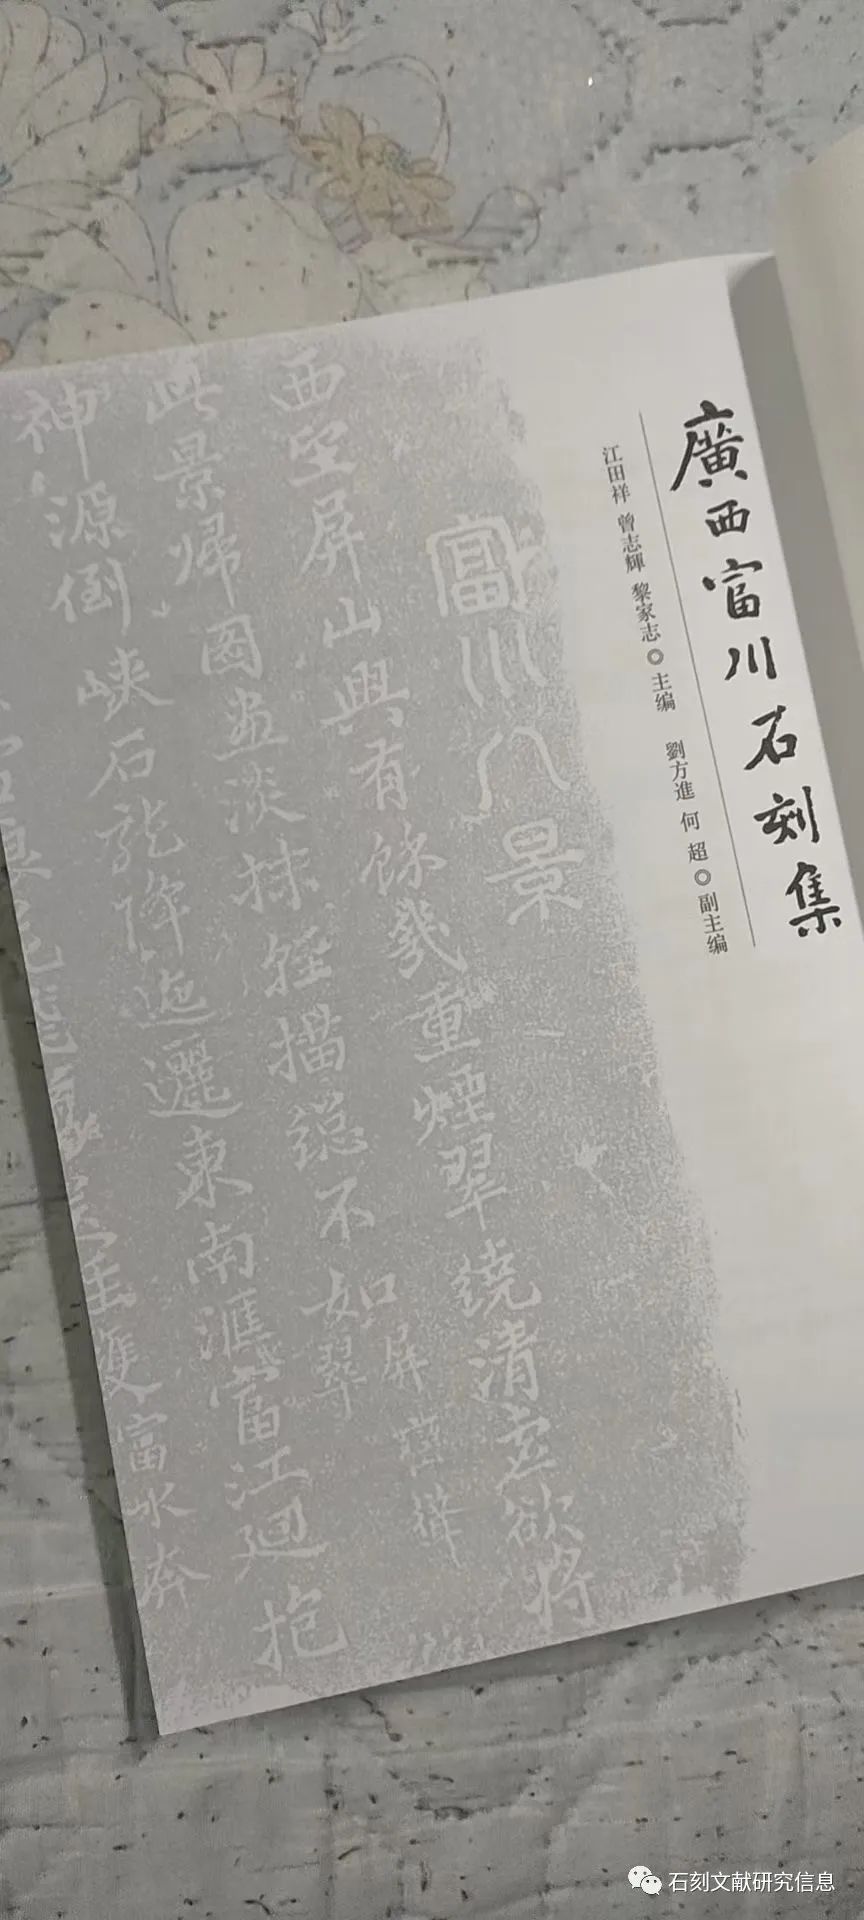 廣西富川石刻集
江田祥 曾志輝 黎家志◎主编 劉方進 何超◎副主编
富川八景
西望屏山興有餘幾重煙翠繞清虛欲將
此景歸圖畫淡抹輕描總不如翠屏
神源倒峽石龍降迤邐東南滙富江廻抱
富水奔
石刻文献研究信息